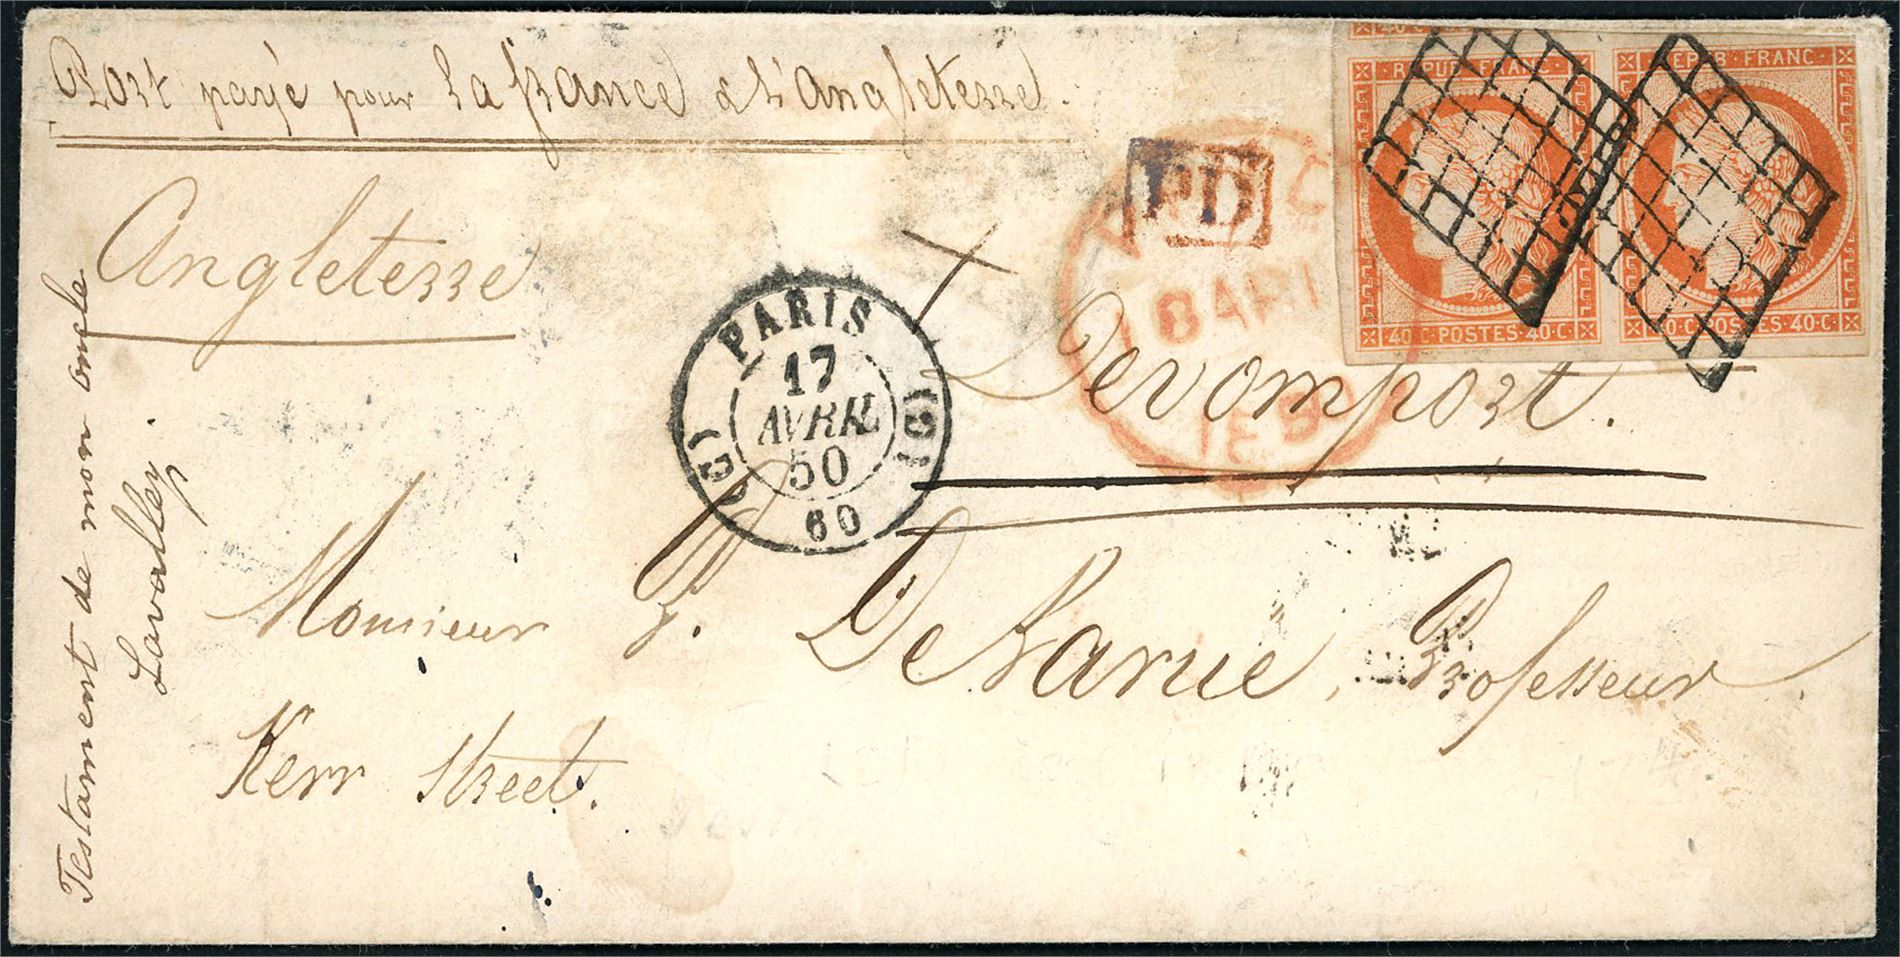 Port payé pour la france & l'angleterre.
40·C
REPUB·FRANC
REPUB·FRANC
40·C·POSTES·40·C
40·C·POSTES·40·C
PD
angleterre
PARIS
17
AVRIL
50
60
Devonport.
Monsieur J. DeLarue, Professeur
Kerr Street.
Testament de mon oncle
Lavalley